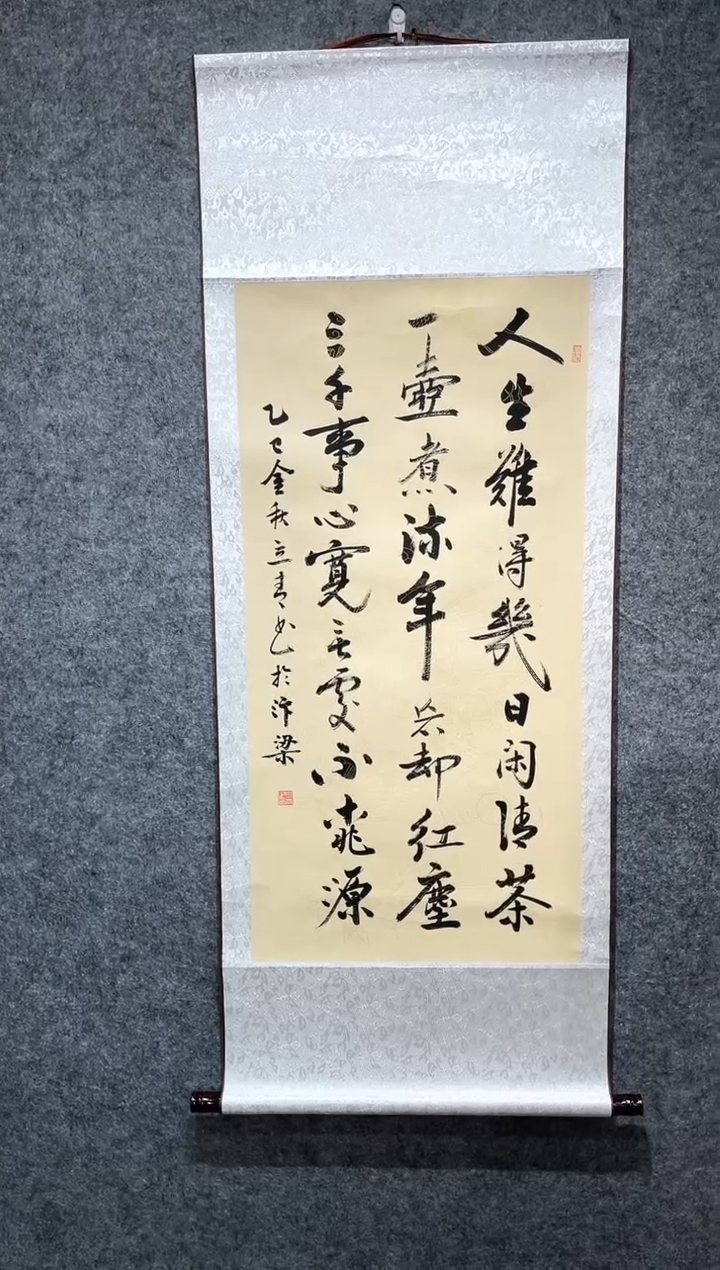 人生難得幾日闲清茶
一壺煮流年忘却红塵
三千事心寬无處不桃源
乙巳金秋立青书於汴梁